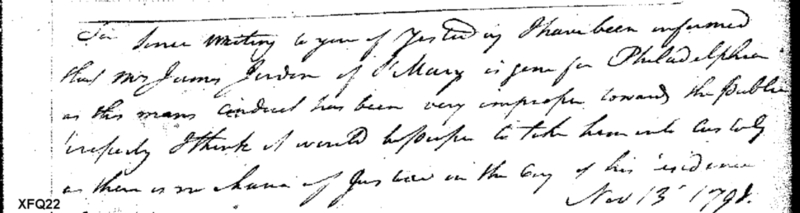 Sir Since writing to you of Yesterday I have been informed
that Mr James Jordon of St Mary is gone for Philadelphia
as this mans Conduct has been very improper towards the Public
I think it would be proper to take him into Custody
as there is no chance of Justice in the of his residence
Nov 13 1798.
XFQ22